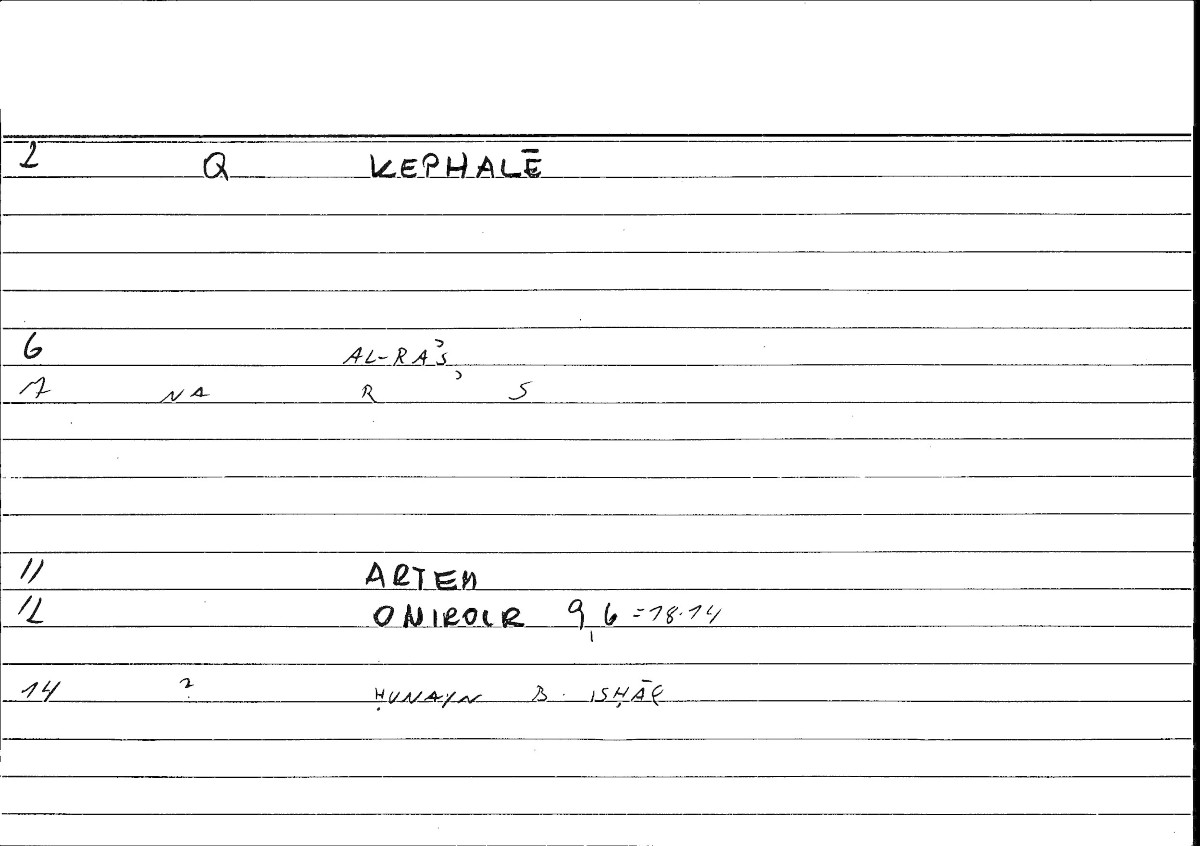 2 Q KEPHALĒ
6 AL-RAʾS
7 NA R ʾ S
11 ARTEM
12 ONIROCR 9,6 =18.14
14 ? ḤUNAYN B. ISḤĀQ